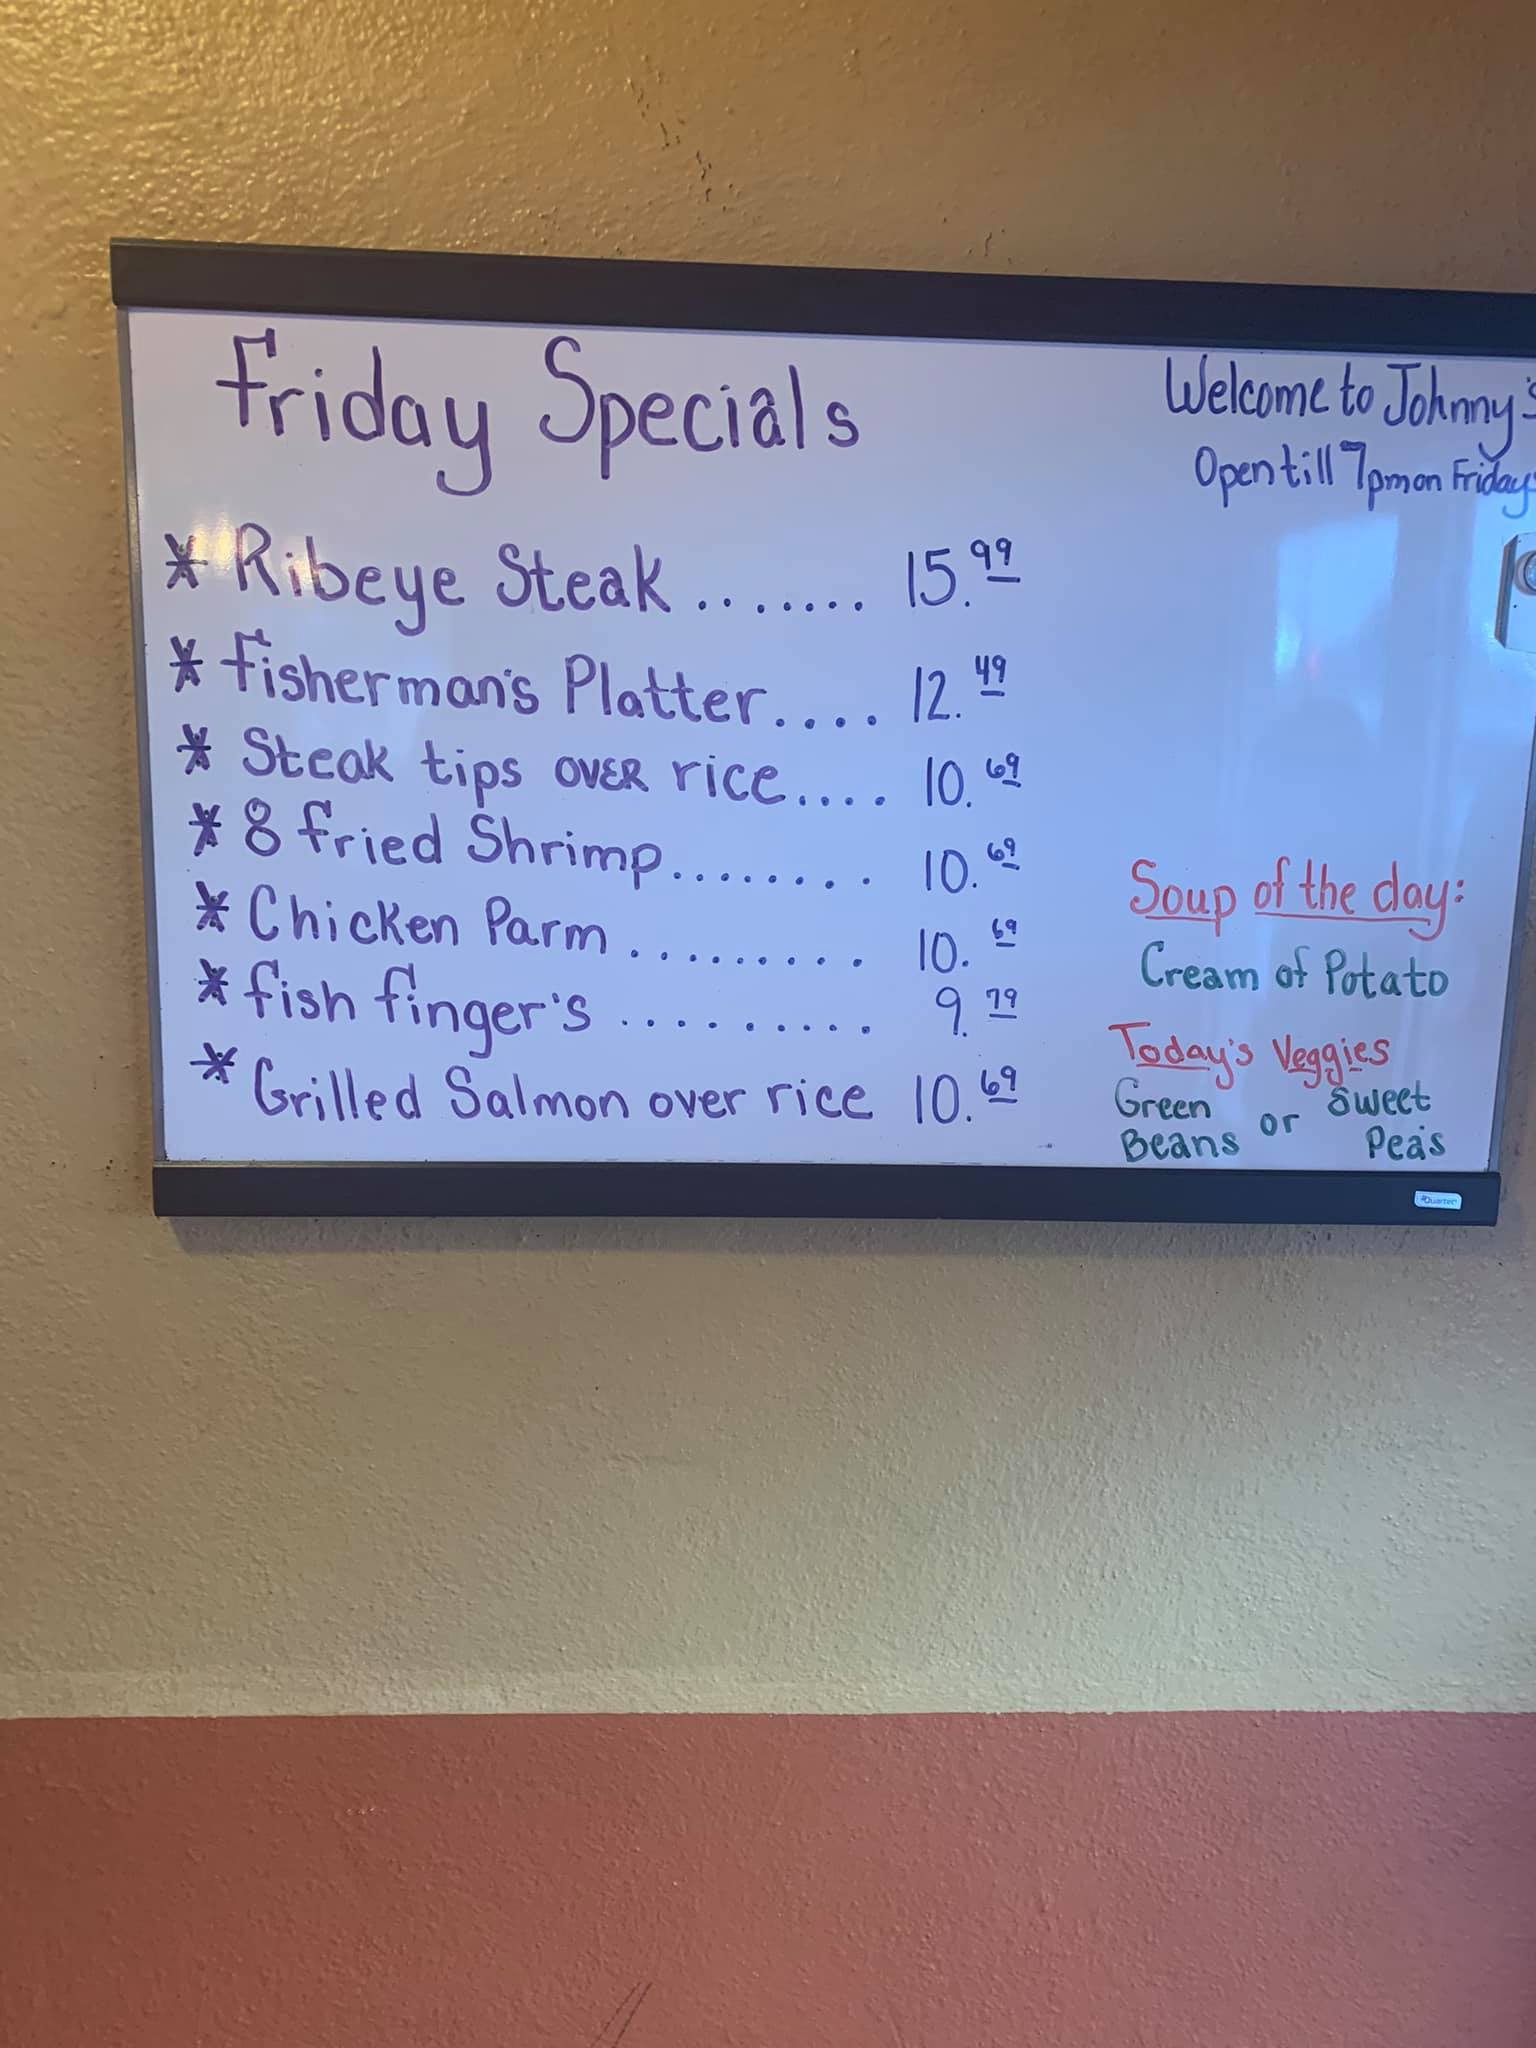 Friday Specials
* Ribeye Steak ....... 15.99
* Fisherman's Platter.... 12.49
* Steak tips OVER rice.... 10.69
* 8 fried Shrimp........ 10.69
* Chicken Parm ......... 10.69
* fish finger's .......... 9.79
* Grilled Salmon over rice 10.69
Welcome to Johnny's
Open till 7pm on Fridays
Soup of the day:
Cream of Potato
Today's Veggies
Green Beans or Sweet Pea's
Quartet